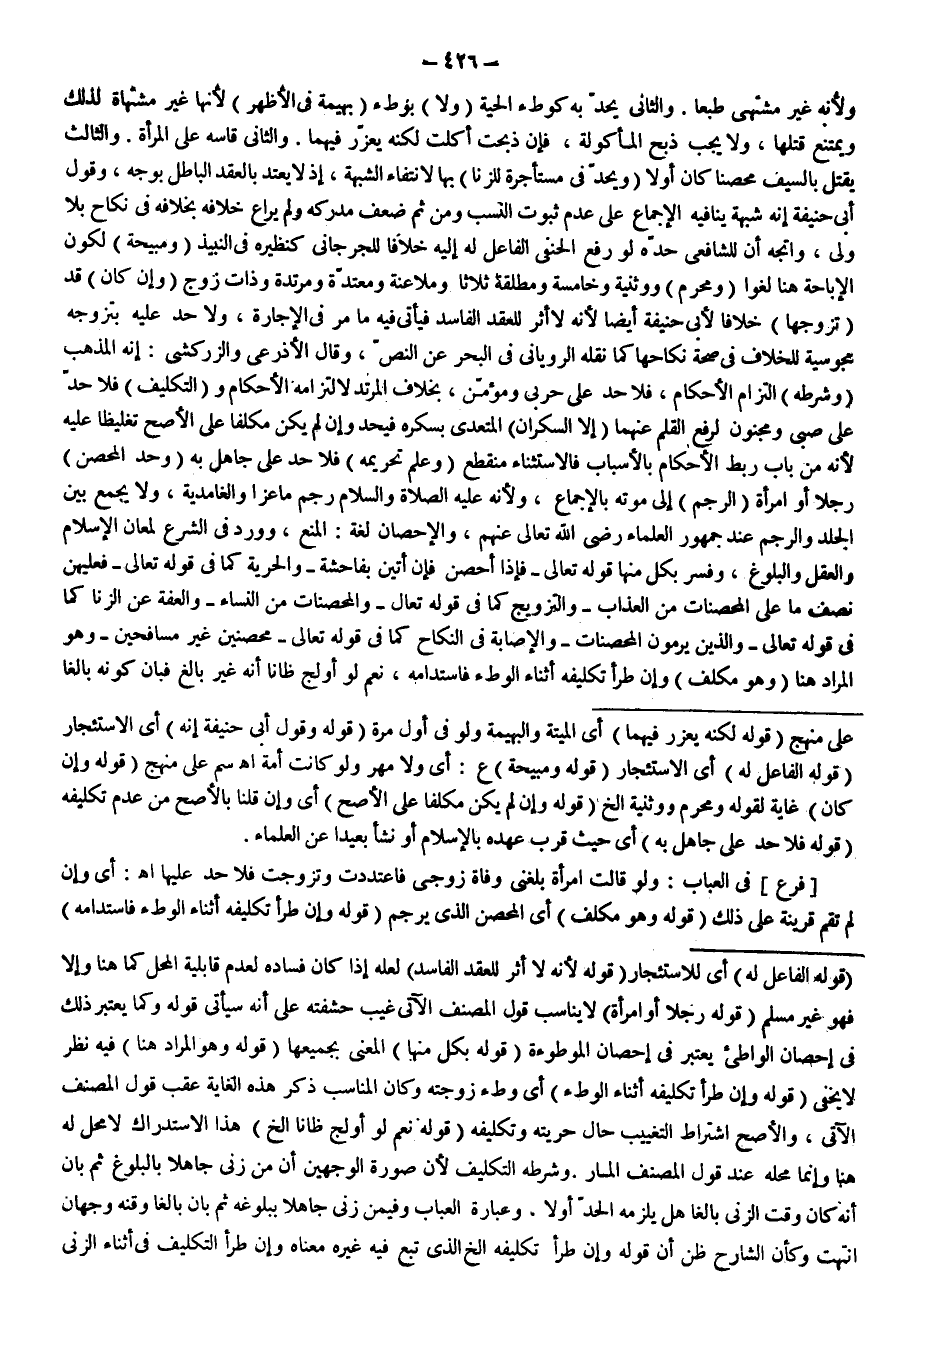 – ٤٢٦ –
ولأنه غير مشتهى طبعا . والثانى يحدّ به كوطء الحية (ولا) بؤطء (بهيمة فى الأظهر) لأنها غير مشتهاة لذلك
ويمتنع قتلها ، ولا يجب ذبح المأكولة ، فإن ذبحت أكلت لكنه يعزّر فيهما . والثانى قاسه على المرأة . والثالث
يقتل بالسيف محصنا كان أولا (ويحدّ فى مستأجرة للزنا) بها لانتفاء الشبهة ، إذ لا يعتد بالعقد الباطل بوجه ، وقول
أبى حنيفة إنه شبهة ينافيه الإجماع على عدم ثبوت النسب ومن ثم ضعف مدركه ولم يراع خلافه بخلافه فى نكاح بلا
ولى ، واتجه أن للشافعى حدّه لو رفع الحنفى الفاعل له إليه خلافا للجرجانى كنظيره فى النبيذ (ومبيحة) لكون
الإباحة هنا لغوا (ومحرم) ووثنية وخامسة ومطلقة ثلاثا وملاعنة ومعتدّة ومرتدة وذات زوج (وإن كان) قد
(تزوجها) خلافا لأبى حنيفة أيضا لأنه لا أثر للعقد الفاسد فيأتى فيه ما مر فى الإجارة ، ولا حد عليه بتزوجه
مجوسية للخلاف فى صحة نكاحها كما نقله الرويانى فى البحر عن النصّ ، وقال الأذرعى والزركشى : إنه المذهب
(وشرطه) التزام الأحكام ، فلا حد على حربى ومؤمّن ، بخلاف المرتد لالتزامه الأحكام و (التكليف) فلا حدّ
على صبى ومجنون لرفع القلم عنهما (إلا السكران) المتعدى بسكره فيحد وإن لم يكن مكلفا على الأصح تغليظا عليه
لأنه من باب ربط الأحكام بالأسباب فالاستثناء منقطع (وعلم تحريمه) فلا حد على جاهل به (وحد المحصن)
رجلا أو امرأة (الرجم) إلى موته بالإجماع ، ولأنه عليه الصلاة والسلام رجم ماعزا والغامدية ، ولا يجمع بين
الجلد والرجم عند جمهور العلماء رضى الله تعالى عنهم ، والإحصان لغة : المنع ، وورد فى الشرع لمعان الإسلام
والعقل والبلوغ ، وفسر بكل منها قوله تعالى ـ فإذا أحصن فإن أتين بفاحشة ـ والحرية كما فى قوله تعالى ـ فعليهن
نصف ما على المحصنات من العذاب ـ والتزويج كما فى قوله تعال ـ والمحصنات من النساء ـ والعفة عن الزنا كما
فى قوله تعالى ـ والذين يرمون المحصنات ـ والإصابة فى النكاح كما فى قوله تعالى ـ محصنين غير مسافحين ـ وهو
المراد هنا (وهو مكلف) وإن طرأ تكليفه أثناء الوطء فاستدامه ، نعم لو أولج ظانا أنه غير بالغ فبان كونه بالغا
على منهج (قوله لكنه يعزر فيهما) أى الميتة والبهيمة ولو فى أول مرة (قوله وقول أبى حنيفة إنه) أى الاستئجار
(قوله الفاعل له) أى الاستئجار (قوله ومبيحة) ع : أى ولا مهر ولو كانت أمة اه سم على منهج (قوله وإن
كان) غاية لقوله ومحرم ووثنية الخ (قوله وإن لم يكن مكلفا على الأصح) أى وإن قلنا بالأصح من عدم تكليفه
(قوله فلا حد على جاهل به) أى حيث قرب عهده بالإسلام أو نشأ بعيدا عن العلماء .
[فرع] فى العباب : ولو قالت امرأة بلغنى وفاة زوجى فاعتددت وتزوجت فلا حد عليها اه : أى وإن
لم تقم قرينة على ذلك (قوله وهو مكلف) أى المحصن الذى يرجم (قوله وإن طرأ تكليفه أثناء الوطء فاستدامه)
(قوله الفاعل له) أى للاستئجار (قوله لأنه لا أثر للعقد الفاسد) لعله إذا كان فساده لعدم قابلية المحل كما هنا وإلا
فهو غير مسلم (قوله رجلا أو امرأة) لا يناسب قول المصنف الآتى غيب حشفته على أنه سيأتى قوله وكما يعتبر ذلك
فى إحصان الواطئ يعتبر فى إحصان الموطوءة (قوله بكل منها) المعنى بجميعها (قوله وهو المراد هنا) فيه نظر
لا يخفى (قوله وإن طرأ تكليفه أثناء الوطء) أى وطء زوجته وكان المناسب ذكر هذه الغاية عقب قول المصنف
الآتى ، والأصح اشتراط التغييب حال حريته وتكليفه (قوله نعم لو أولج ظانا الخ) هذا الاستدراك لا محل له
هنا وإنما محله عند قول المصنف المار . وشرطه التكليف لأن صورة الوجهين أن من زنى جاهلا بالبلوغ ثم بان
أنه كان وقت الزنى بالغا هل يلزمه الحدّ أولا . وعبارة العباب وفيمن زنى جاهلا ببلوغه ثم بان بالغا وقته وجهان
انتهت وكأن الشارح ظن أن قوله وإن طرأ تكليفه الخ الذى تبع فيه غيره معناه وإن طرأ التكليف فى أثناء الزنى